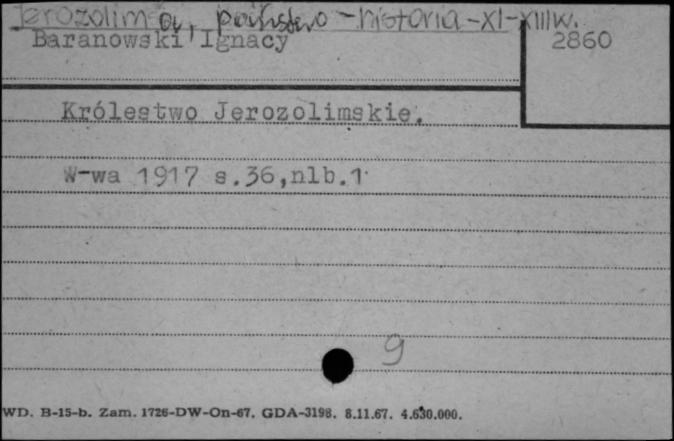 Jerozolima, państwo - historia - XI-XIIIw.
Baranowski Ignacy
2860
Królestwo Jerozolimskie.
W-wa 1917 s.36,nlb.1
9
WD. B-15-b. Zam. 1726-DW-On-67. GDA-3198. 8.11.67. 4.630.000.